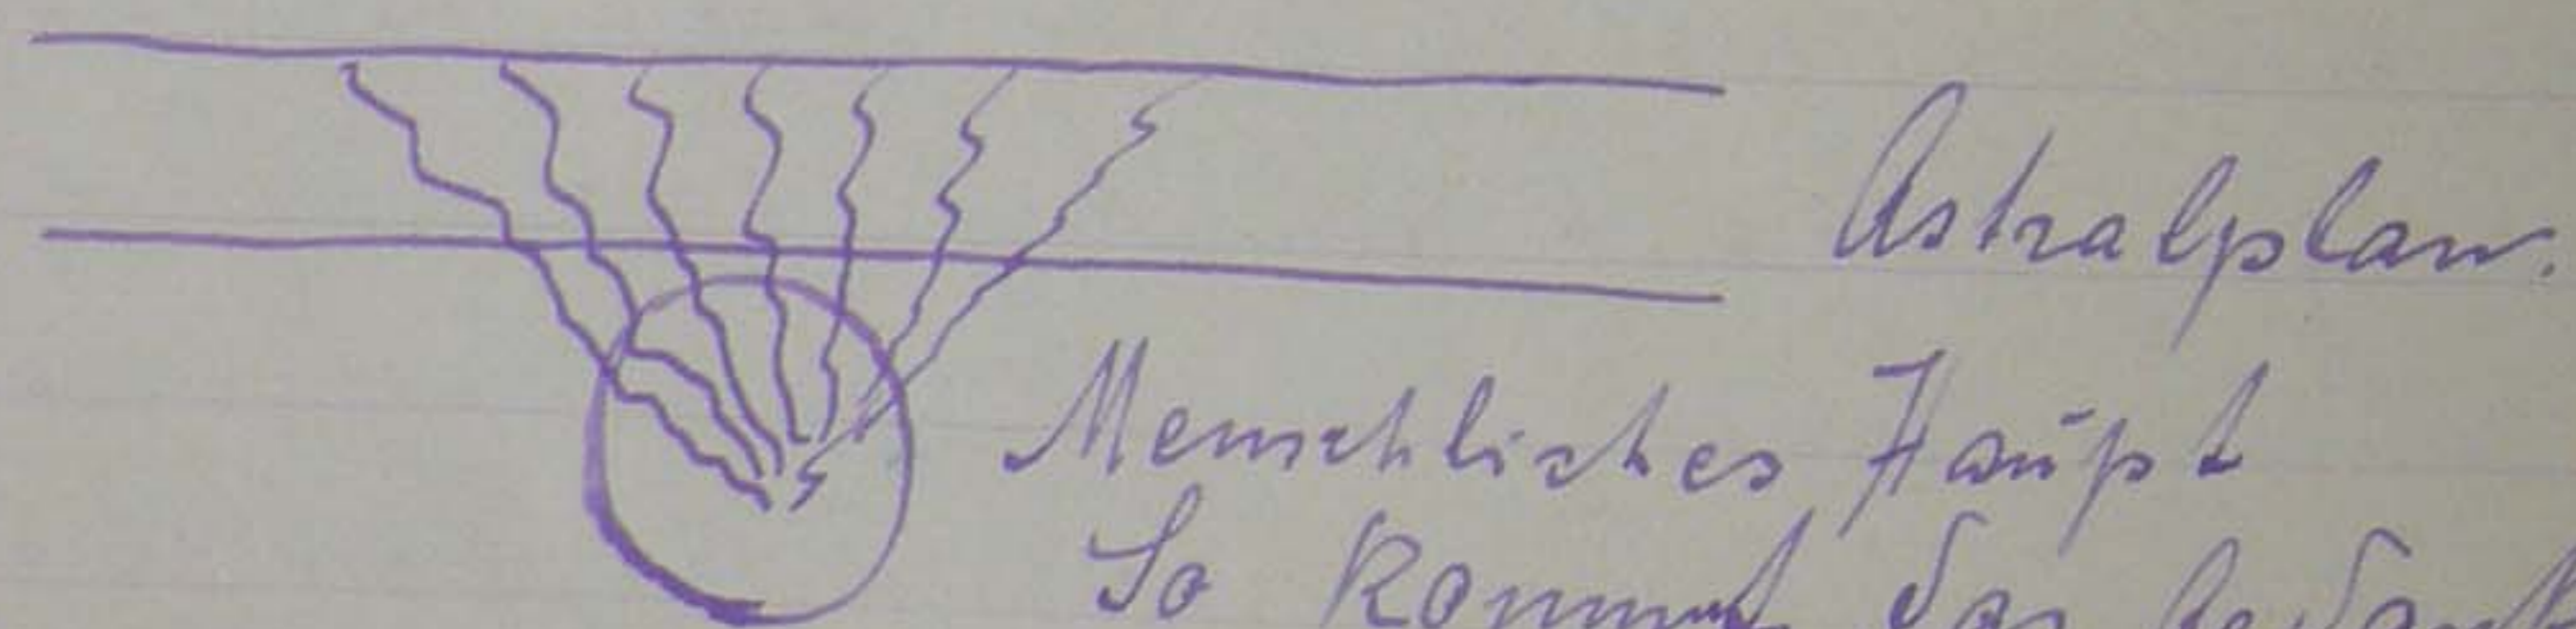 Astralplan.
Menschliches Haupt
So kommt der